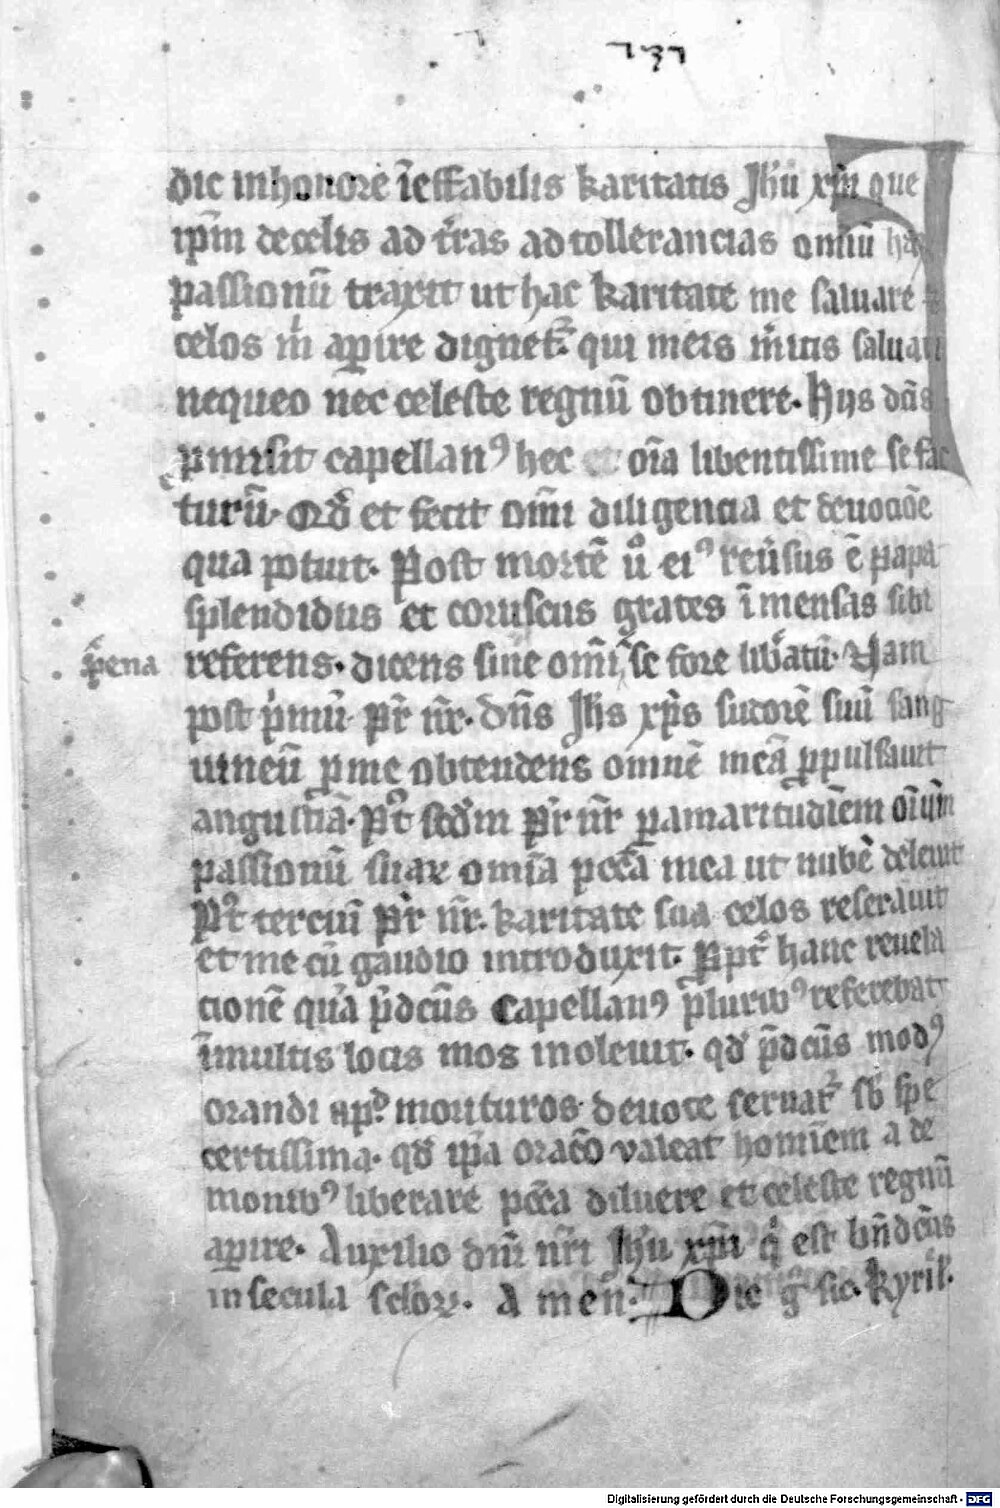 dic inhonore īeffabilis karitatis Jhū xp̄i que
ip̄m de celis ad t̄ras ad tollerancias om̄iū
passionū traxit ut hac karitate me saluare
celos m̄ ap̲ire dignet᷑. qui meis m̄itis saluari
nequeo nec celeste regnū obtinere. Hijs dn̄s
p̲misit capellanꝰ hec et oīa libentissime se fac
turū. Qd̄ et fecit om̄i diligencia et deuocōe
qua potuit. Post mortē u̇o eiꝰ reūsus ē papa
splendidus et coruscus grates īmensas sibi
p̄ena
referens. dicens sine om̄i se fore lib̄atū. Nam
post p̄mū pr̄ nr̄. dn̄s Jhs xp̄s sutorē suū sang
uineū p̲ me obtendens omnē meā p̲pulsauit
angustiā. Pt̄ sed̄m pr̄ nr̄ p̲ amaritudīem oīum
passionū suaꝝ omīa pccā mea ut nubē deleuit
Pt̄ terciū pr̄ nr̄. karitate sua celos reserauit
et me cū gaudio introduxit. Ppt̄ hanc reuela
cionē quā p̄dcūs Capellanꝰ pluribꝰ referebat
ī multis locis mos inoleuit. qd̄ p̄dcūs modꝰ
orandi apd̄ morituros deuote seruat᷑ sb̄ spe
certissima. qd̄ ip̄a orac̄o valeat homīem a de
monibꝰ liberare pccā diluere et celeste regnū
ap̲ire. Auxilio dn̄i nr̄i Jhū xp̄i q̄ est bn̄dcūs
in secula sclōꝝ. Amen. Dic g̊ sic. kyriel̄.
Digitalisierung gefördert durch die Deutsche Forschungsgemeinschaft - DFG